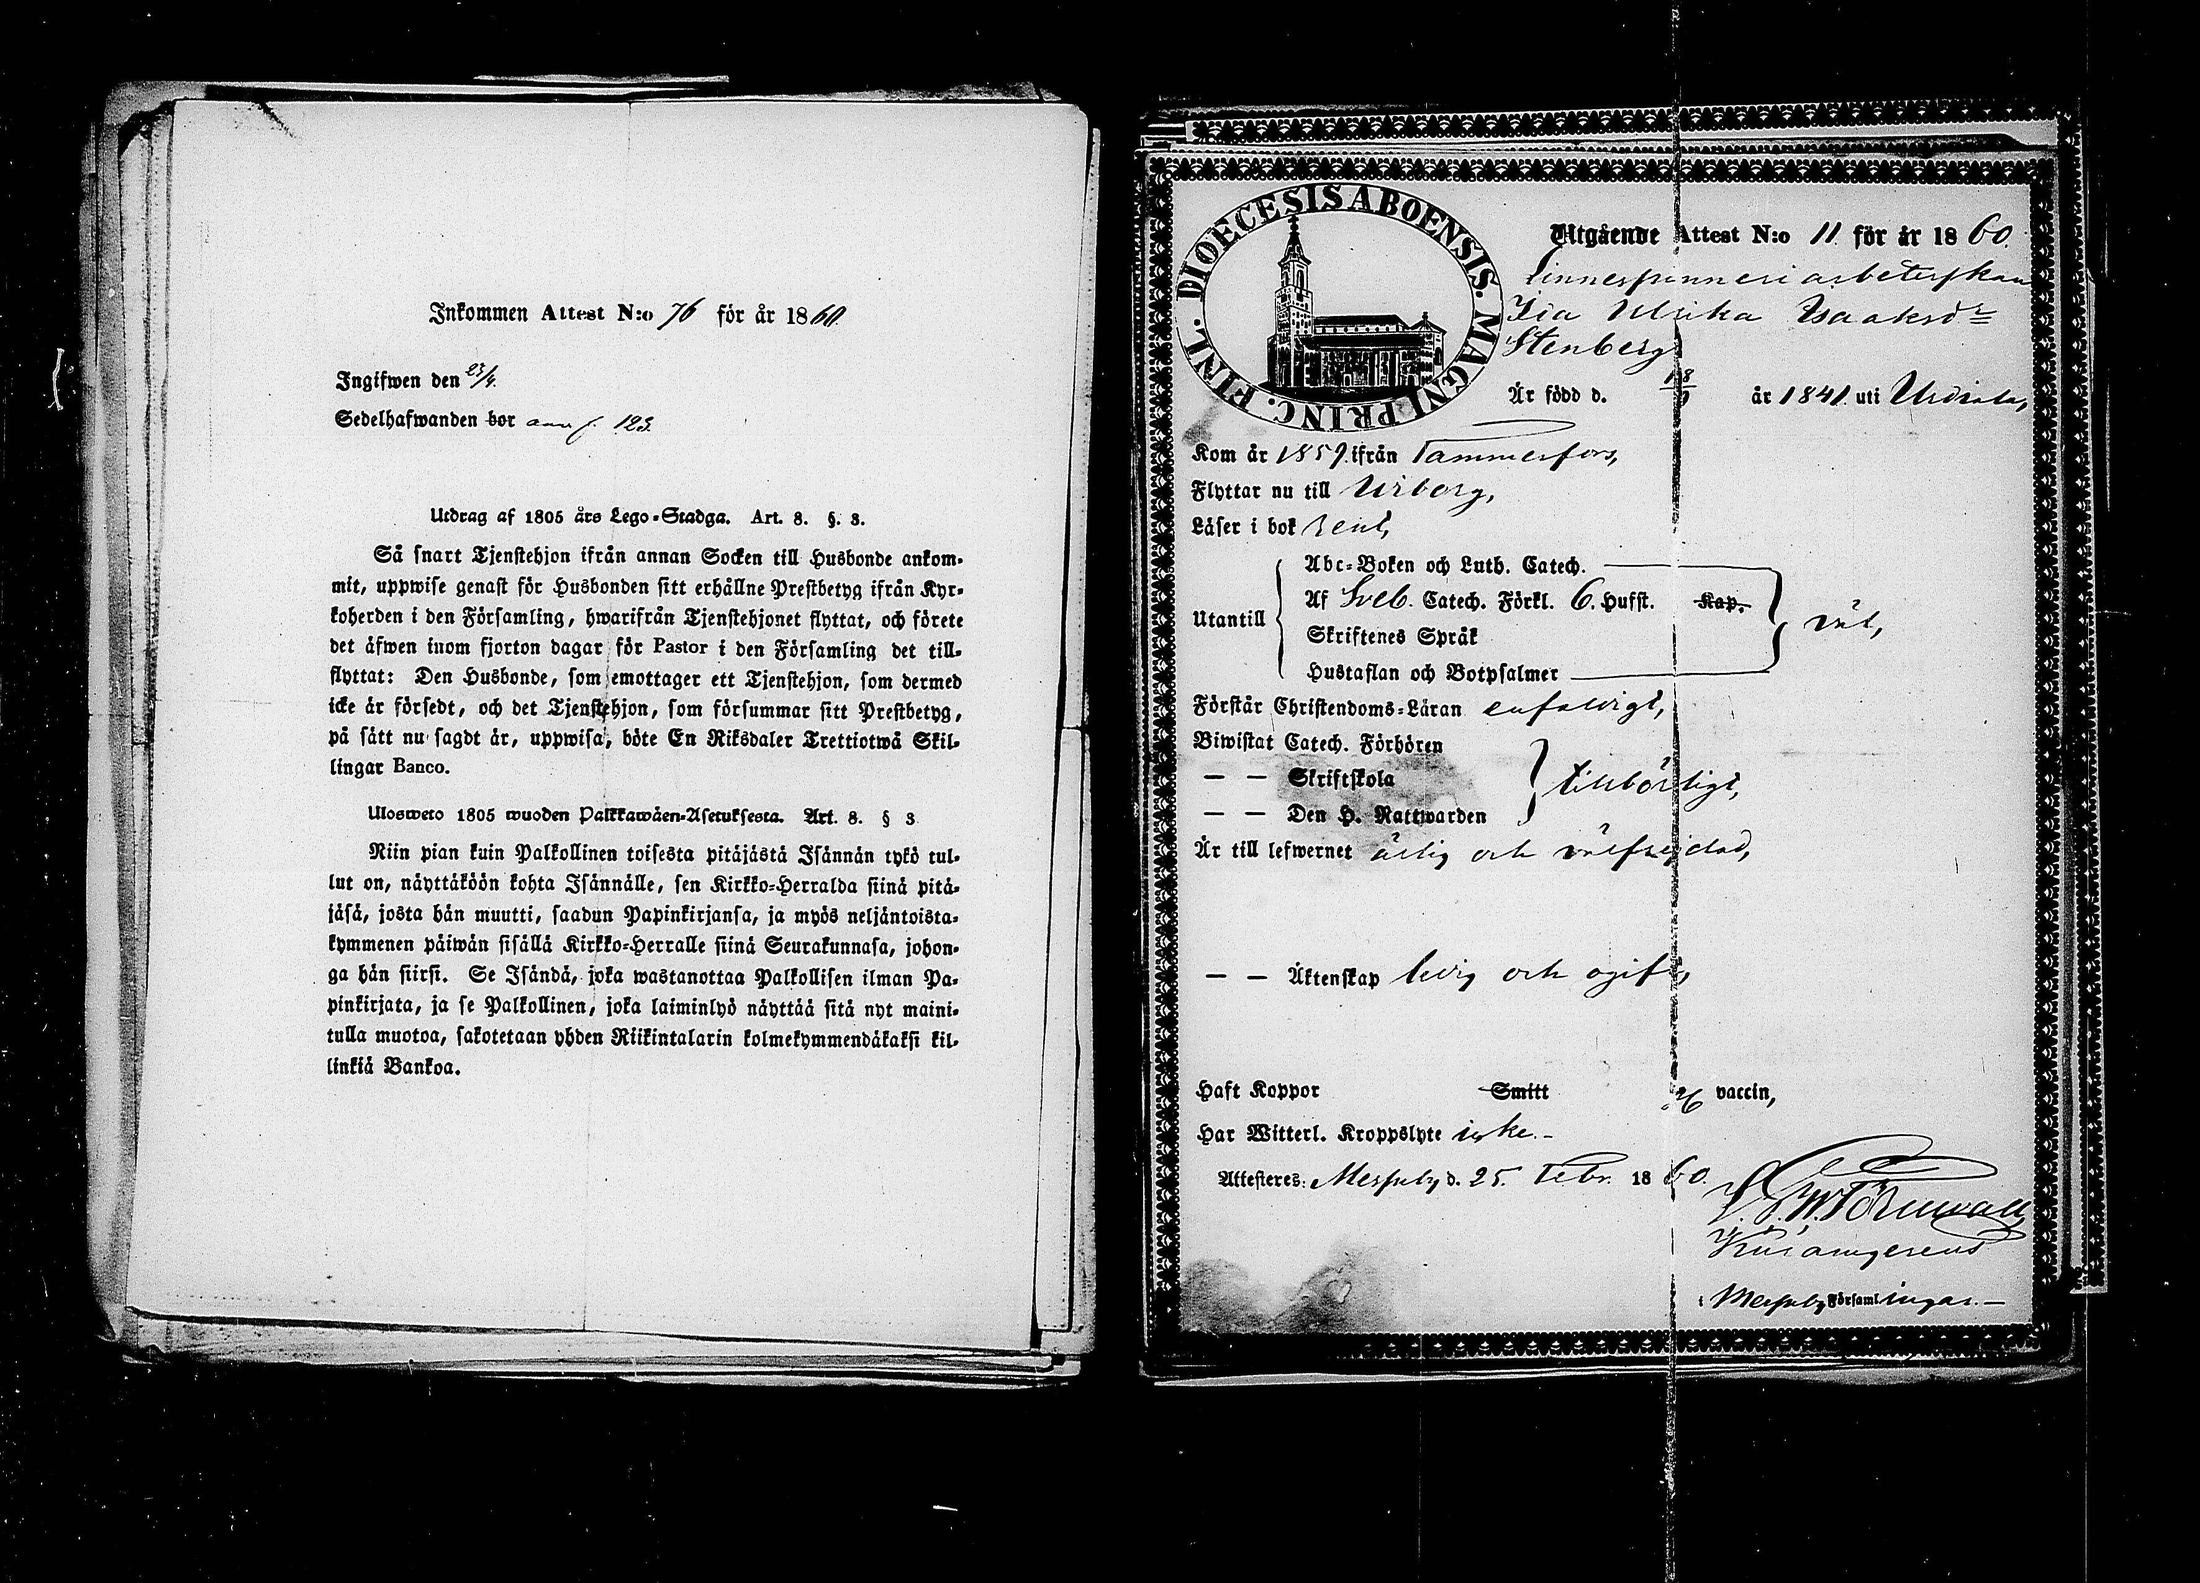 Inkommen Attest N:o 76 för år 1860.
Ingifwen den 23/4.
Sedelhafwanden bor 123.
Utdrag af 1805 års Lego-Stadga. Art. 8. §. 3.
Så snart Tjenstehjon ifrån annan Socken till Husbonde ankom-
mit, uppwise genast för Husbonden sitt erhållne Prestbetyg ifrån Kyr-
koherden i den Församling, hwarifrån Tjenstehjonet flyttat, och förete
det äfwen inom fjorton dagar för Pastor i den Församling det till-
flyttat: Den Husbonde, som emottager ett Tjenstehjon, som dermed
icke är försedt, och det Tjenstehjon, som försummar sitt Prestbetyg,
på sätt nu sagdt är, uppwisa, böte En Riksdaler Trettiotwå Skil-
lingar Banco.
Ulosweto 1805 wuoden Palkkawäen-Asetuksesta. Art. 8. § 3
Niin pian kuin Palkollinen toisesta pitäjästä Isännän tykö tul-
lut on, näyttäköön kohta Isännälle, sen Kirkko-Herralda siinä pitä-
jäsä, josta hän muutti, saadun Papinkirjansa, ja myös neljäntoista-
kymmenen päiwän sisällä Kirkko-Herralle siinä Seurakunnasa, johon-
ga hän siirsi. Se Isändä, joka wastanottaa Palkollisen ilman Pa-
pinkirjata, ja se Palkollinen, joka laiminlyö näyttää sitä nyt maini-
tulla muotoa, sakotetaan yhden Riikintalarin kolmekymmendäkaksi kil-
linkiä Bankoa.
DIOECESIS ABOENSIS. MAGNI PRINC. FINL.
Utgående Attest N:o 11. för år 1860.
Linnespinneri arbeterskan
Ida Ulrika Isaaksdr
Stenberg
Är född d. år 1841. uti Urdiala,
Kom år 1859. ifrån Tammerfors,
Flyttar nu till Wiborg,
Läser i bok rent,
Utantill
Abc-Boken och Luth. Catech.
Af Sveb. Catech. Förkl. 6. Hufst. Kap.
Skriftenes Språk
Hustaflan och Botpsalmer
väl,
Förstår Christendoms-Läran enfaldigt,
Biwistat Catech. Förhören
— — Skriftskola
— — Den H. Nattwarden
tillbörligt,
Är till lefwernet ärlig och välfrejdad,
— — Äktenskap ledig och ogift,
Haft Koppor Smitt vaccin,
Har Witterl. Kroppslyte icke.-
Attesteres: Messuby d. 25. Febr. 1860.
Törnwall
i Messuby Församlingar.—